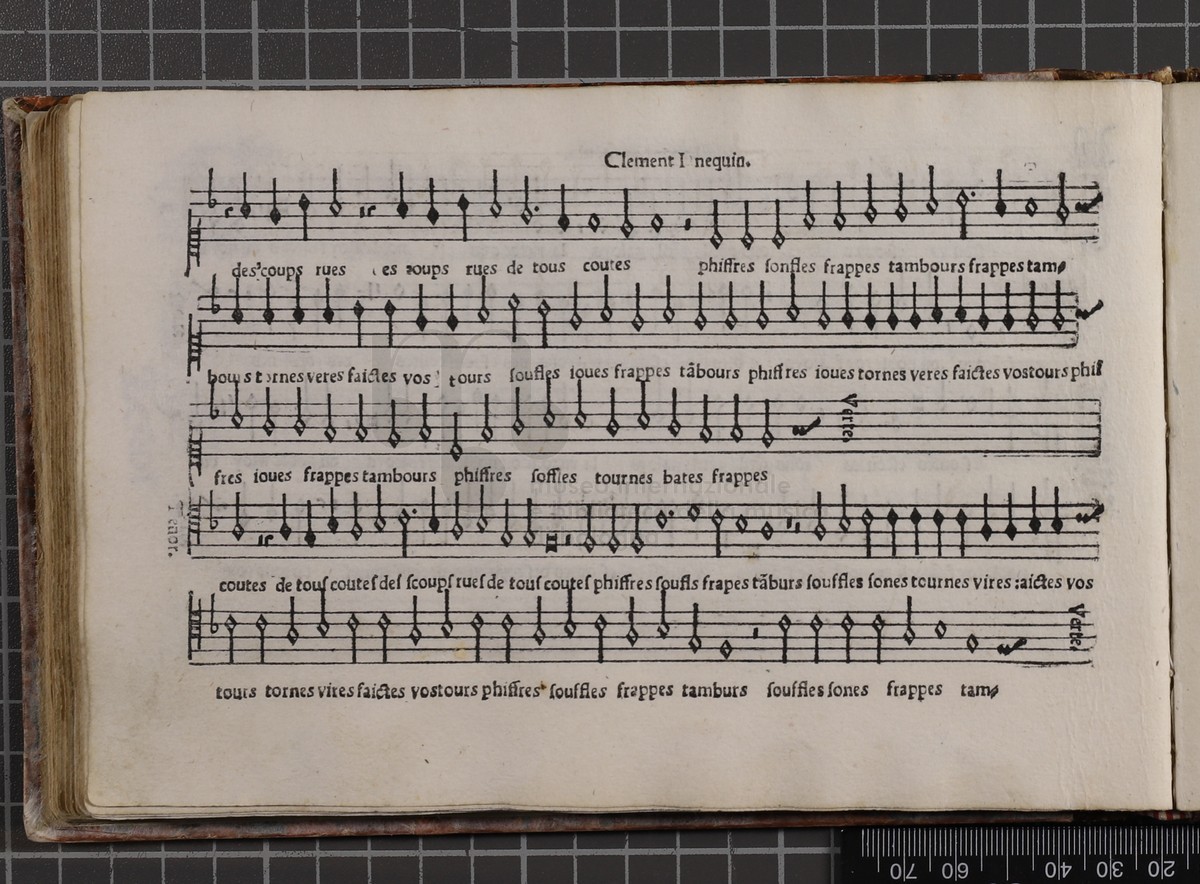 Clement I nequin.
des coups rues es zoups rues de tous coutes phiffres sonfles frappes tambours frappes tam
bours tornes veres faictes vos tours soufles ioues frappes tābours phiffres ioues tornes veres faictes vostours phif
Vertes
fres ioues frappes tambours phiffres soffles tournes bates frappes
Tenor.
coutes de tous coutes des scoups rues de tous coutes phiffres soufls frapes tāburs souffles sones tournes vires aictes vos
Vertes
tours tornes vires faictes vostours phiffres souffles frappes tamburs souffles sones frappes tam
museo internazionale
70 60 40 30 20